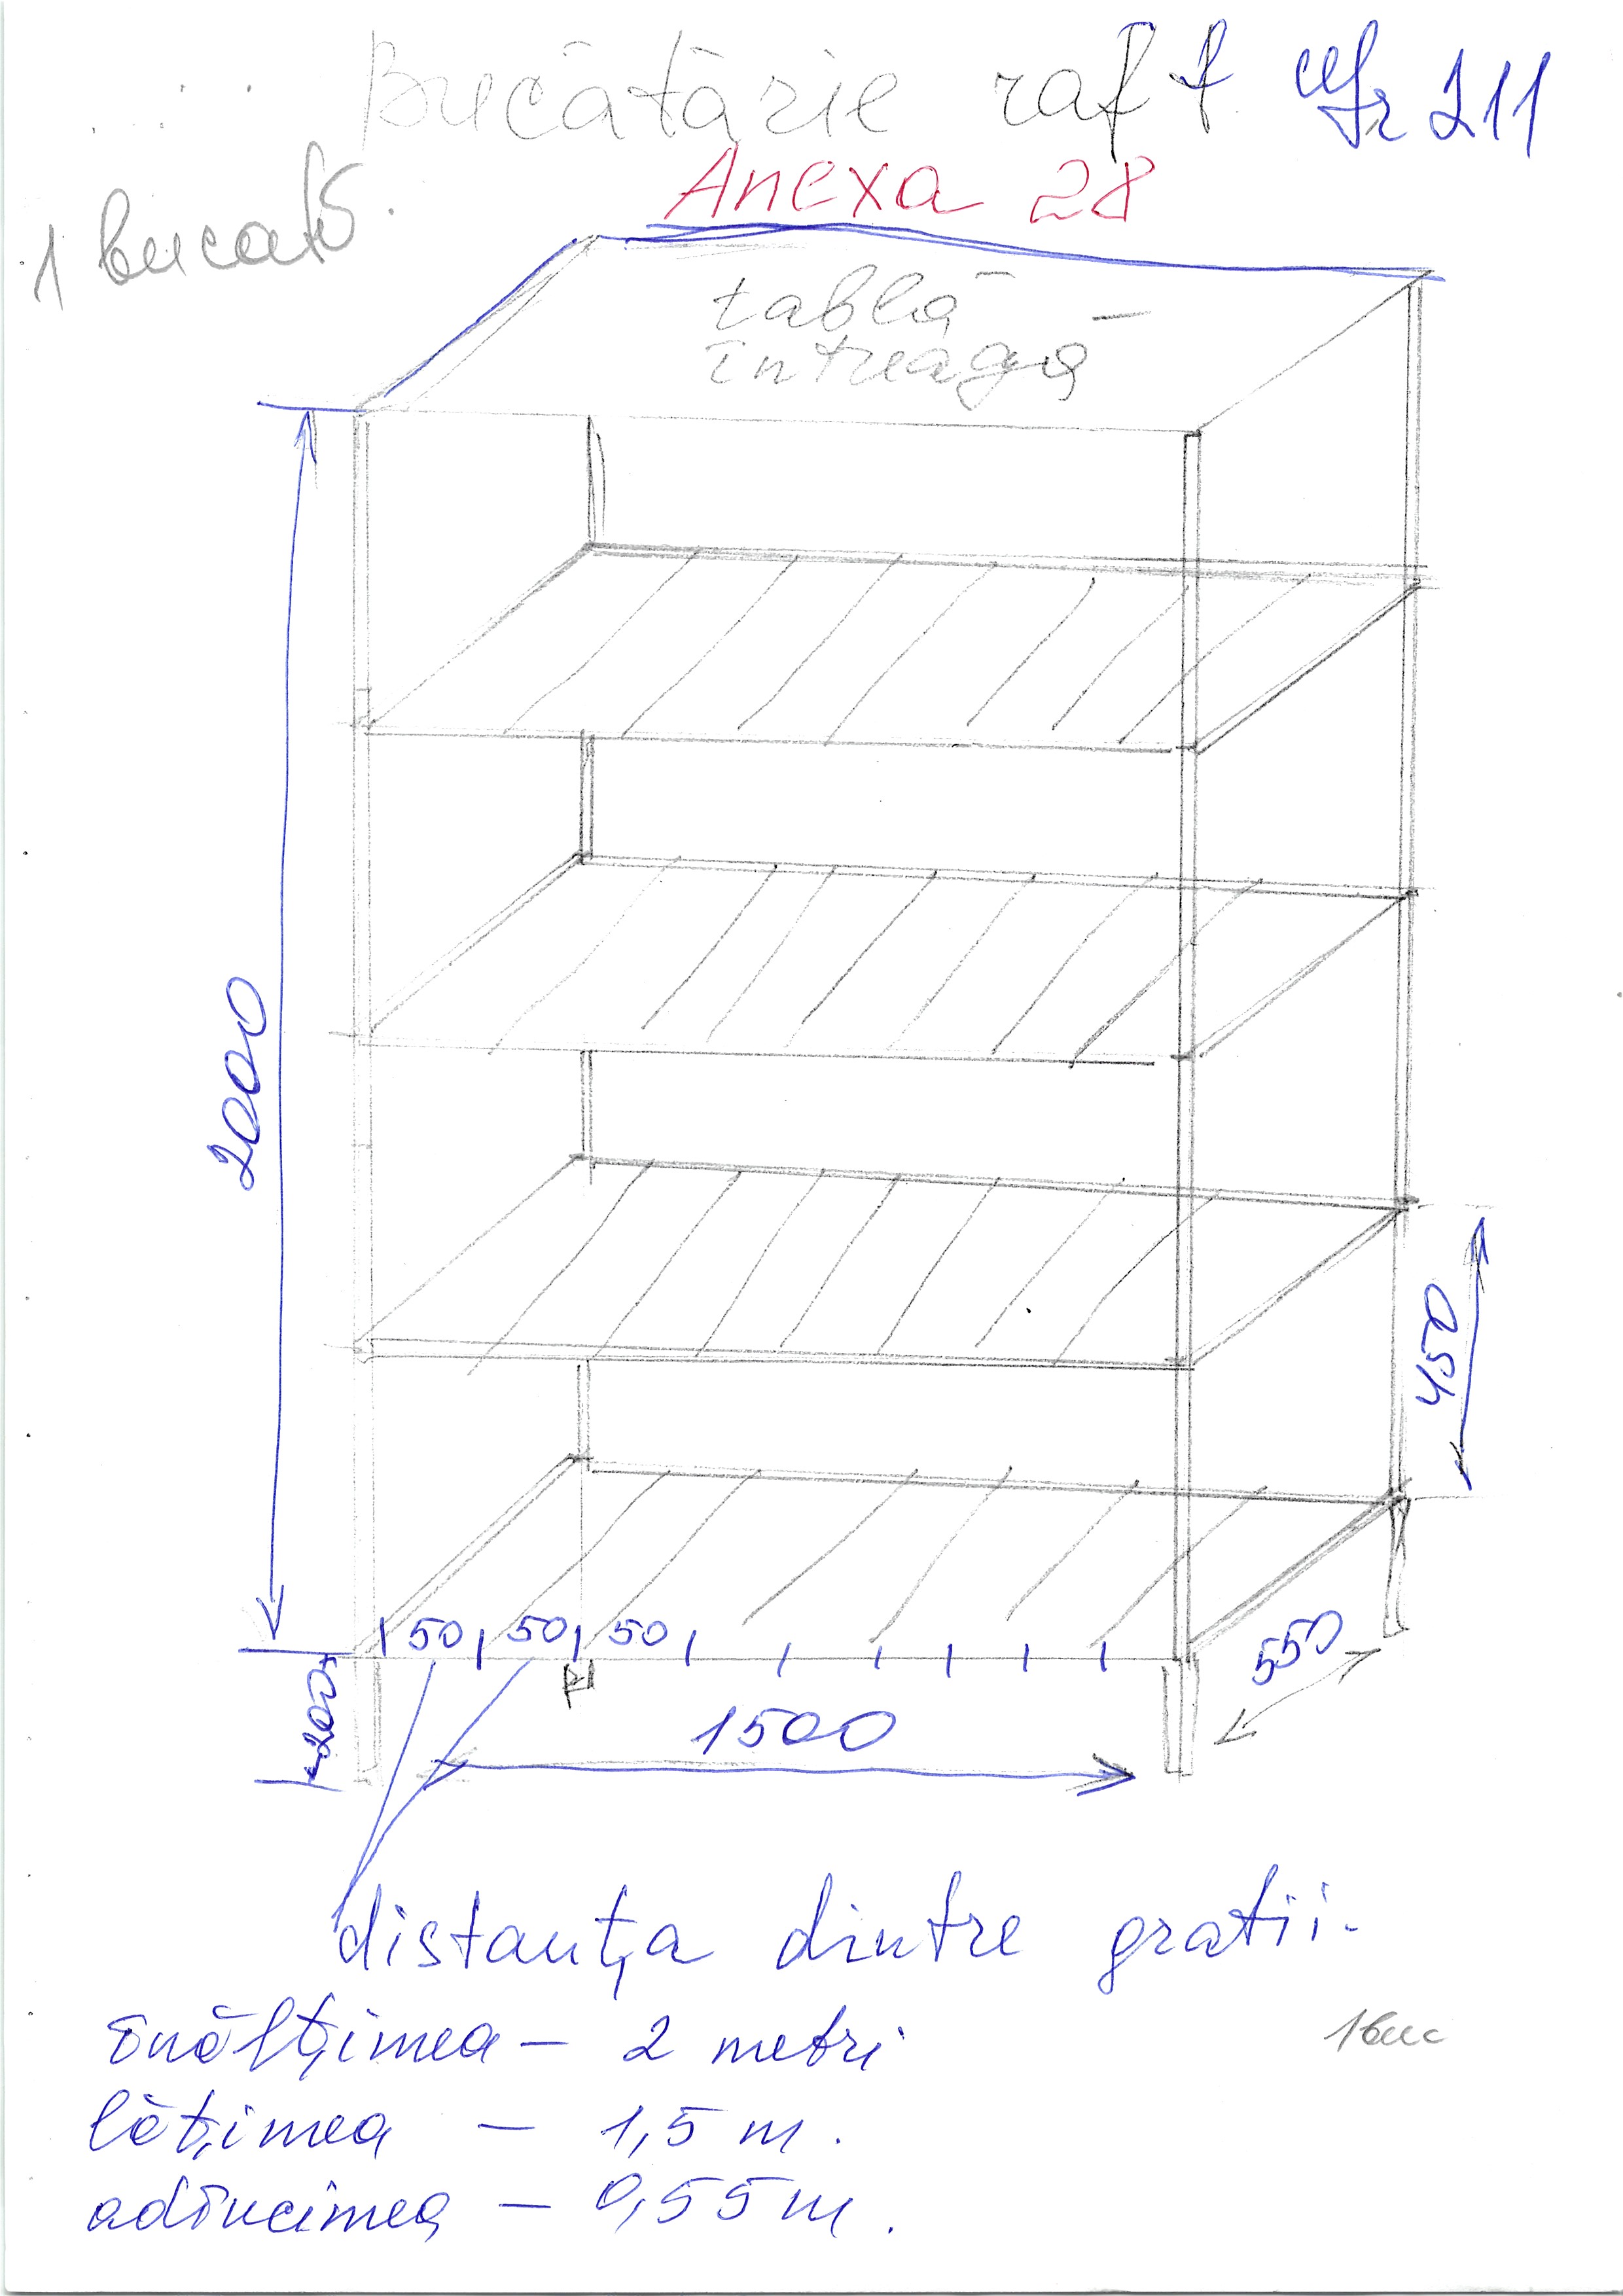 Bucătărie raft 211
Anexa 28
1 bucată.
tablă
întreagă
2000
450
50 50 50
550
200
1500
distanța dintre gratii.
Înălțimea - 2 metri
1 buc
lățimea - 1,5 m.
adîncimea - 0,55 m.